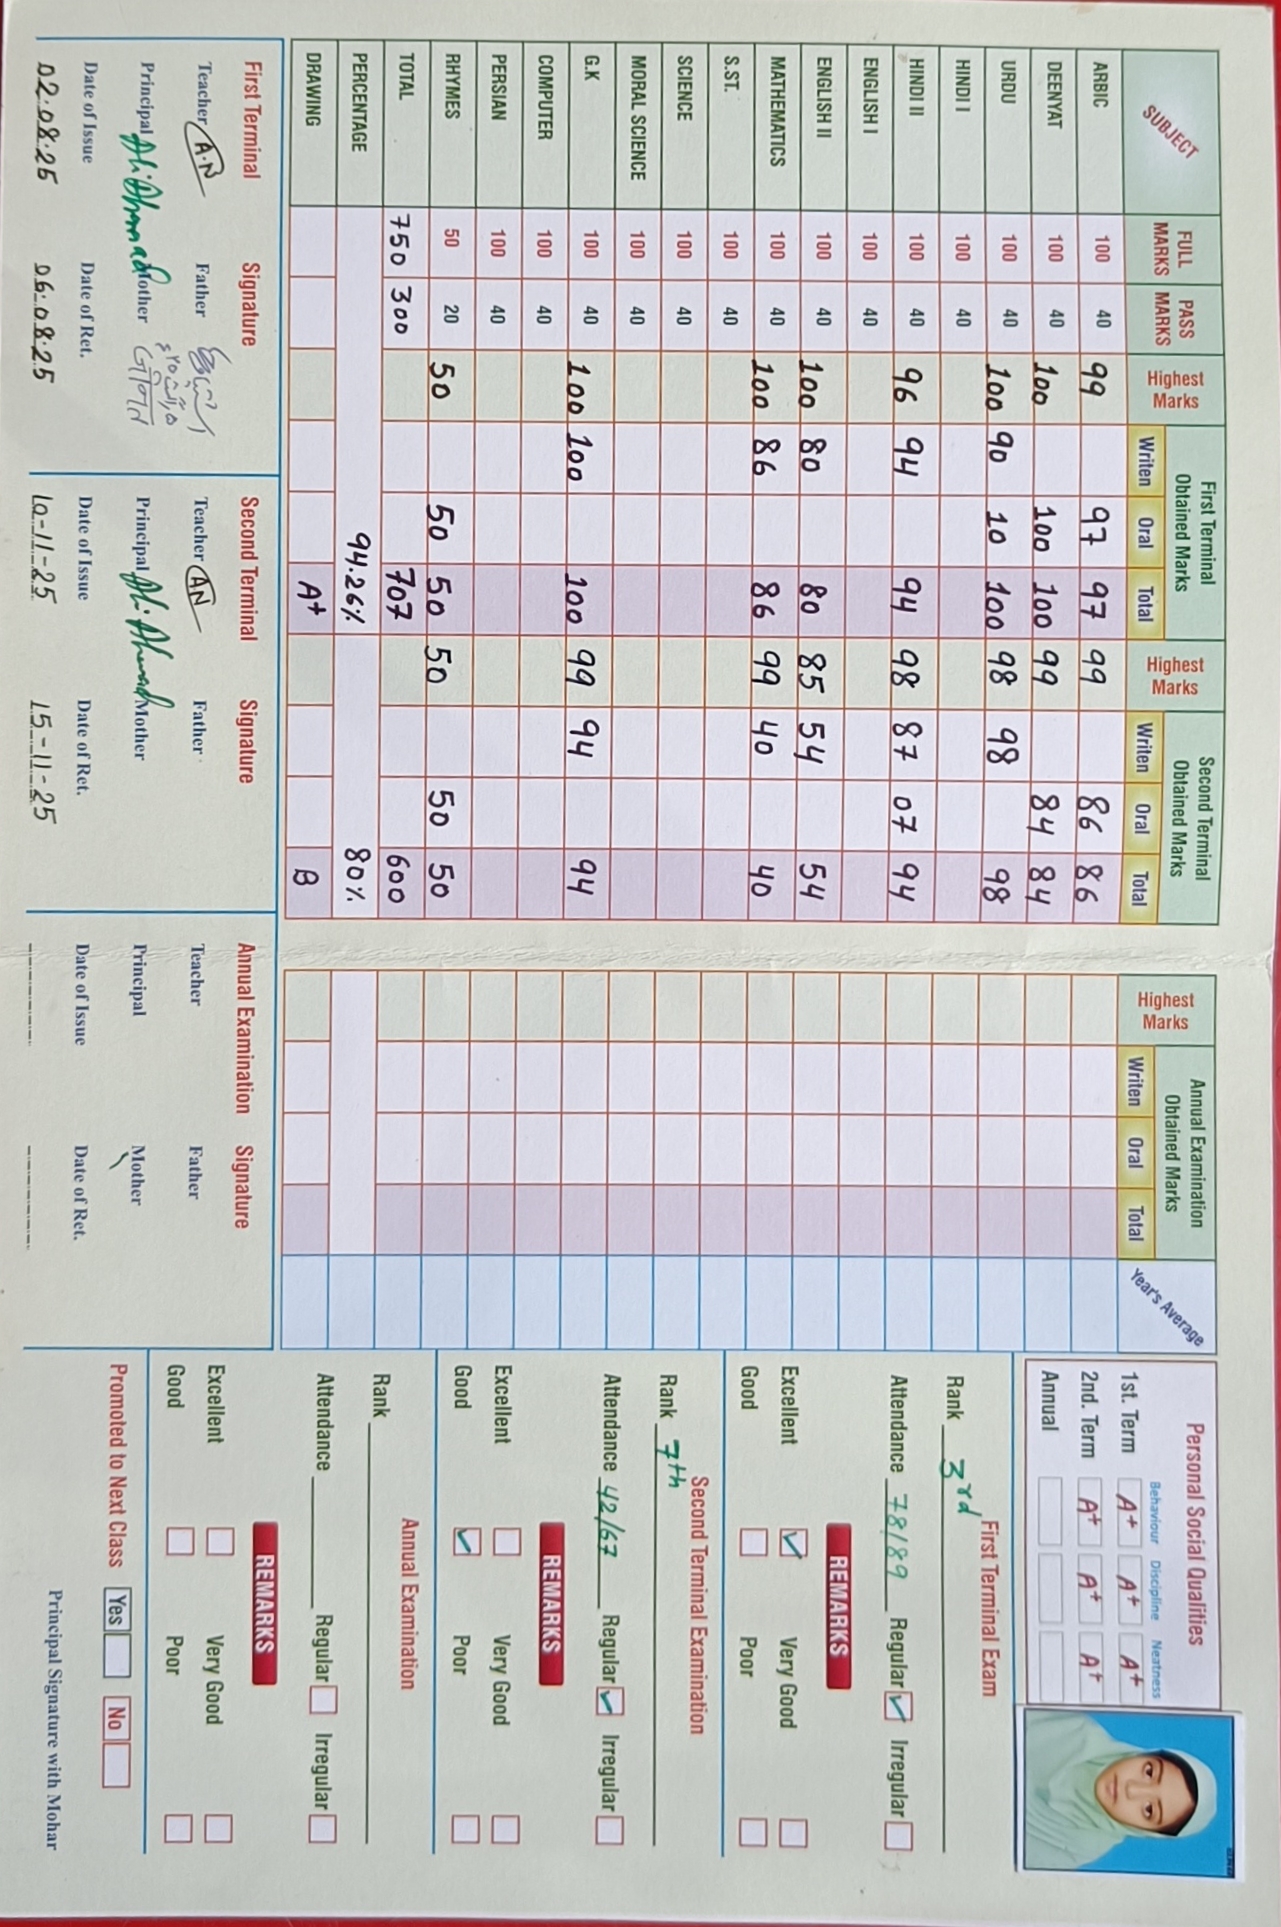 SUBJECT FULL MARKS PASS MARKS Highest Marks First Terminal Obtained Marks Writen Oral Total Highest Marks Second Terminal Obtained Marks Writen Oral Total
ARBIC 100 40 99 97 97 99 86 86
DEENYAT 100 40 100 100 100 99 84 84
URDU 100 40 100 90 10 100 98 98 98
HINDI I 100 40
HINDI II 100 40 96 94 94 98 87 07 94
ENGLISH I 100 40
ENGLISH II 100 40 100 80 80 85 54 54
MATHEMATICS 100 40 100 86 86 99 40 40
S.ST. 100 40
SCIENCE 100 40
MORAL SCIENCE 100 40
G.K 100 40 100 100 100 99 94 94
COMPUTER 100 40
PERSIAN 100 40
RHYMES 50 20 50 50 50 50 50 50
TOTAL 750 300 707 600
PERCENTAGE 94.26% 80%
DRAWING A+ B
First Terminal Signature
Teacher A.N Father
Principal Ali Ahmad Mother
Date of Issue Date of Ret.
02.08.25 06.08.25
Second Terminal Signature
Teacher AN Father
Principal Ali Ahmad Mother
Date of Issue Date of Ret.
10-11-25 15-11-25
Highest Marks Annual Examination Obtained Marks Writen Oral Total Year's Average
Annual Examination Signature
Teacher Father
Principal Mother
Date of Issue Date of Ret.
Personal Social Qualities
Behaviour Discipline Neatness
1st. Term A+ A+ A+
2nd. Term A+ A+ A+
Annual
First Terminal Exam
Rank 3rd
Attendance 78/89 Regular Irregular
REMARKS
Excellent Very Good
Good Poor
Second Terminal Examination
Rank 7th
Attendance 42/67 Regular Irregular
REMARKS
Excellent Very Good
Good Poor
Annual Examination
Rank
Attendance Regular Irregular
REMARKS
Excellent Very Good
Good Poor
Promoted to Next Class Yes No
Principal Signature with Mohar